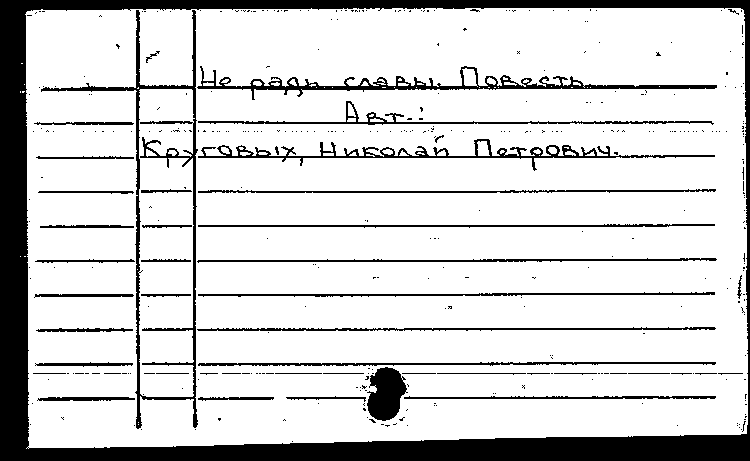 Не ради славы. Повесть
Авт.:
Круговых, Николай Петрович.